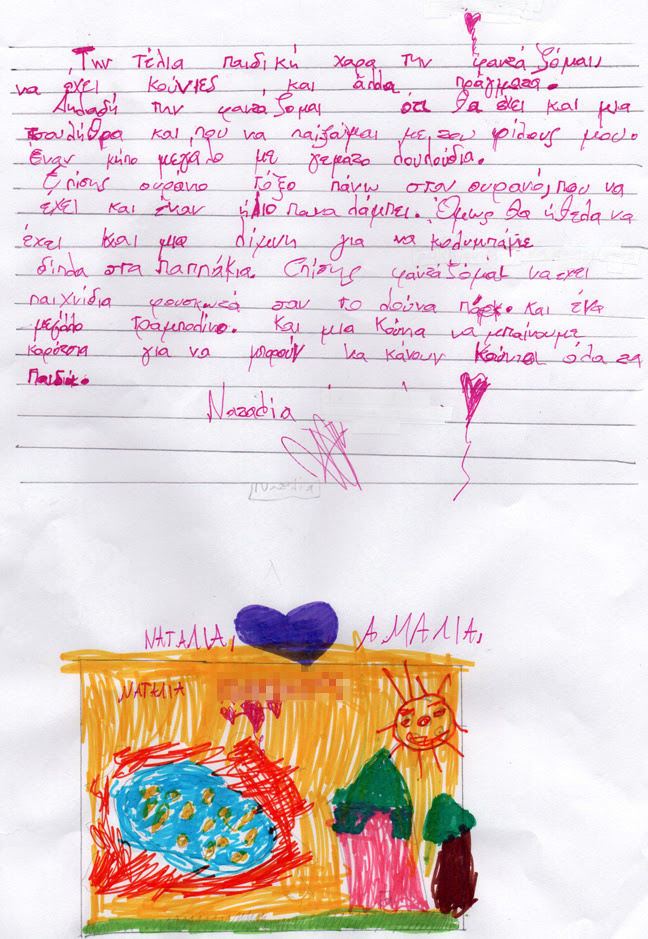 Την τέλια παιδική χαρα την φανταζόμαι
να έχει κούνιες και άλλα πράγματα.
Δηλαδή την φανταζομαι ότι θα έχει και μια
τσουλήθρα και που να παίζουμαι με του φίλους μου.
Έναν κήπο μεγαλο με γεματο λουλούδια.
Επίσης ουράνιο τόξο πάνω στον ουρανό, που να
έχει και έναν ήλιο πανα λάμπει. Όμως θα ήθελα να
έχει και μια λίμνη για να κολυμπάμε
δίπλα στα παππάκια. Επίσης φανταζόμαι να έχει
παιχνίδια φουσκωτά σαν το λούνα πάρκ. και ένα
μεγάλο τραμπολίνο. Και μια κούνια να μπαίνουμε
καρότσια για να μπορούν να κάνουν κούνια όλα τα
παιδιά.
Ναταλία
Ναταλία
ΝΑΤΑΛΙΑ, ΑΜΑΛΙΑ,
ΝΑΤΑΛΙΑ